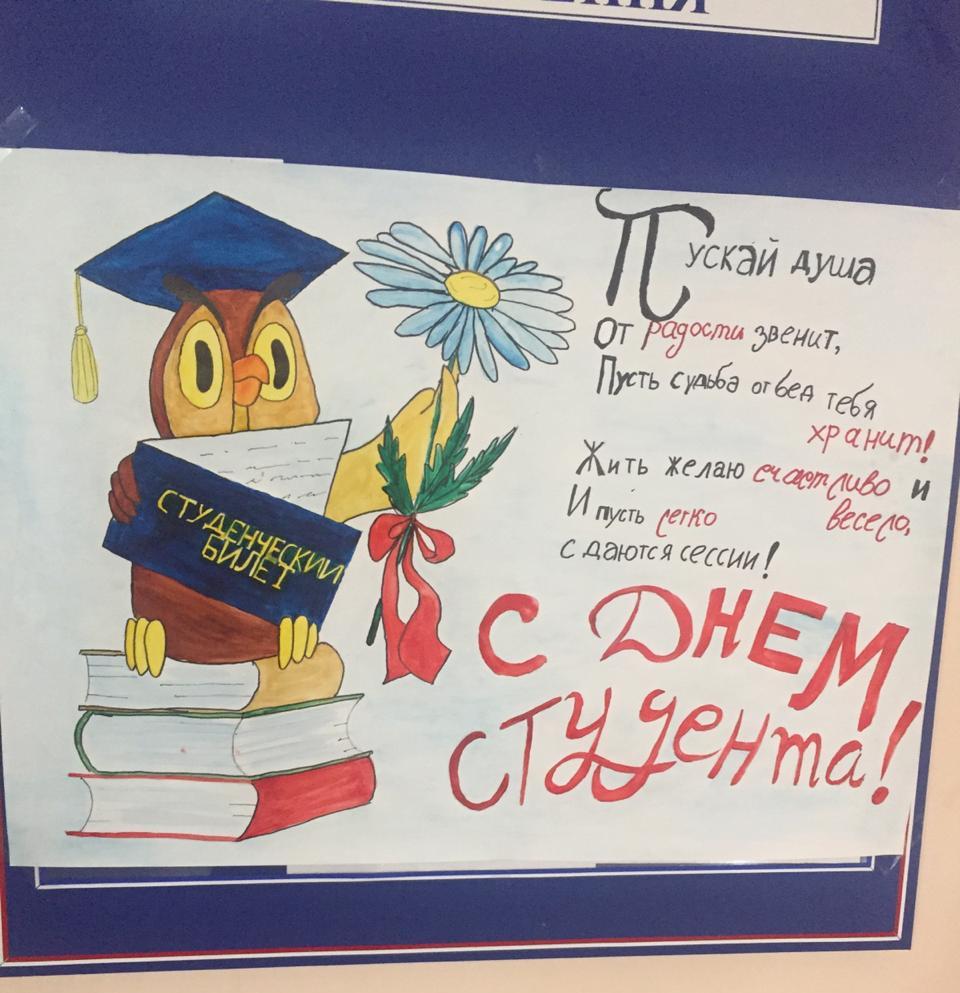 СТУДЕНЧЕСКИЙ
БИЛЕТ
Пускай душа
От радости звенит,
Пусть судьба от бед тебя
хранит!
Жить желаю счастливо и
весело,
И пусть легко
сдаются сессии!
С ДНЕМ
студента!